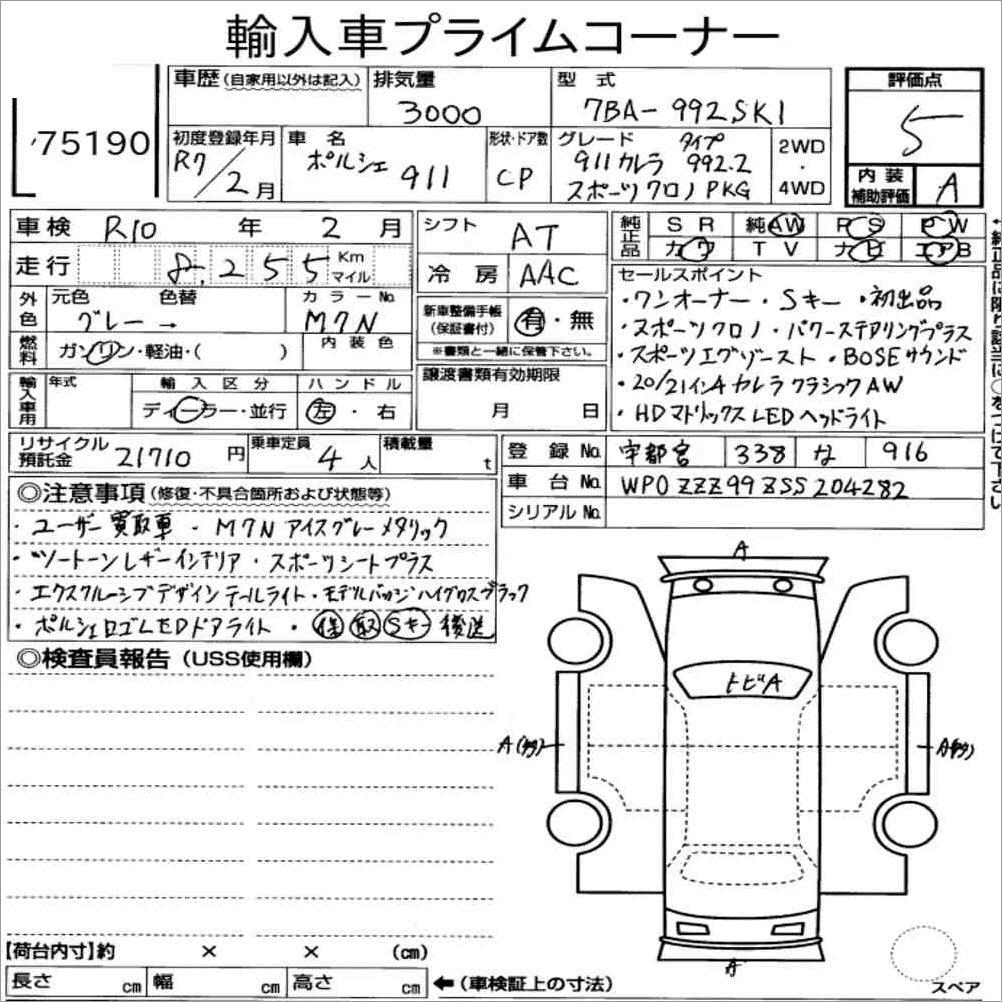 輸入車プライムコーナー
75190
車歴(自家用以外は記入)
排気量
3000
型式
7BA-992SK1
評価点
5
初度登録年月
R7/2月
車名
ポルシェ 911
形状・ドア数
CP
グレード タイプ
911カレラ 992.2
スポーツクロノPKG
2WD
・
4WD
内装
補助評価
A
車検 R10年 2月
シフト
AT
純正品
SR 純AW PS PW
カワ TV ナビ エアB
走行 8,255 Km マイル
冷房
AAC
セールスポイント
・ワンオーナー ・Sキー ・初出品
・スポーツクロノ ・パワーステアリングプラス
・スポーツエグゾースト ・BOSEサウンド
・20/21インチカレラクラシックAW
・HDマトリックスLEDヘッドライト
外色
元色 色替
グレー →
カラーNo
M7N
内装色
新車整備手帳
(保証書付)
有・無
※書類と一緒に保管下さい。
燃料
ガソリン・軽油・( )
輸入車用
年式
輸入区分
ディーラー・並行
ハンドル
左・右
譲渡書類有効期限
月 日
リサイクル
預託金
21710円
乗車定員
4人
積載量
t
登録No.
宇都宮 338 な 916
車台No.
WP0ZZZ99ZSS204282
シリアルNo.
◎注意事項(修復・不具合箇所および状態等)
・ユーザー買取車 ・M7Nアイスグレーメタリック
・ツートーンレザーインテリア ・スポーツシートプラス
・エクスクルーシブデザインテールライト ・モデルバッジハイグロスブラック
・ポルシェロゴLEDドアライト ・保 取 Sキー 後送
◎検査員報告(USS使用欄)
A
トビA
A(多)
A(多)
A
【荷台内寸】約 × × (cm)
長さ cm 幅 cm 高さ cm
←(車検証上の寸法)
スペア